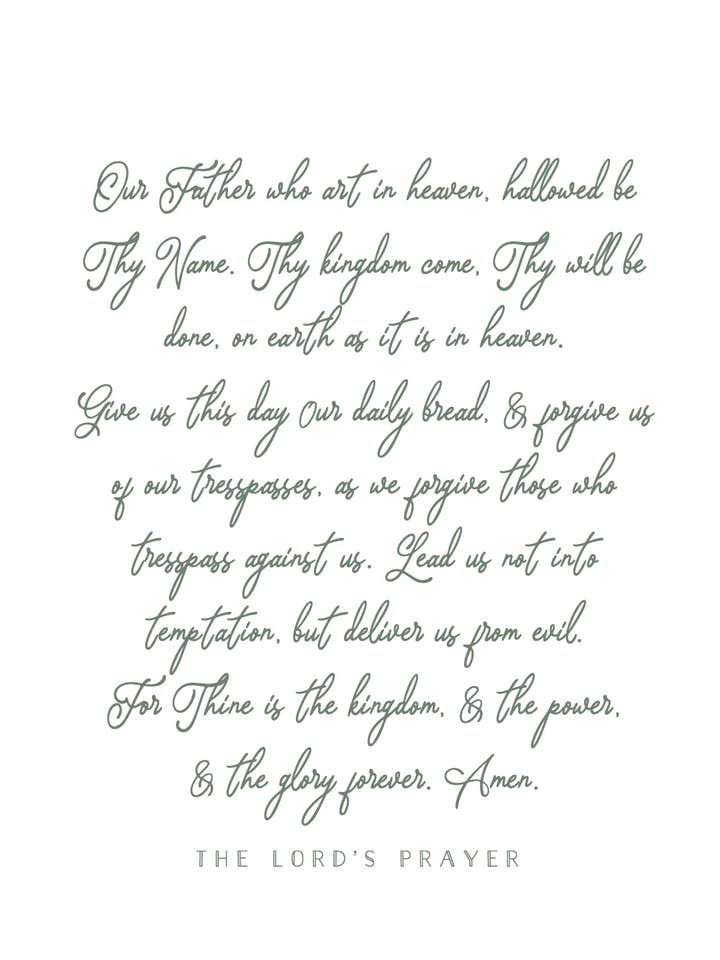 Our Father who art in heaven, hallowed be
Thy Name. Thy kingdom come, Thy will be
done, on earth as it is in heaven.
Give us this day Our daily bread, & forgive us
of our tresspasses, as we forgive those who
tresspass against us. Lead us not into
temptation, but deliver us from evil.
For Thine is the kingdom, & the power,
& the glory forever. Amen.
THE LORD'S PRAYER